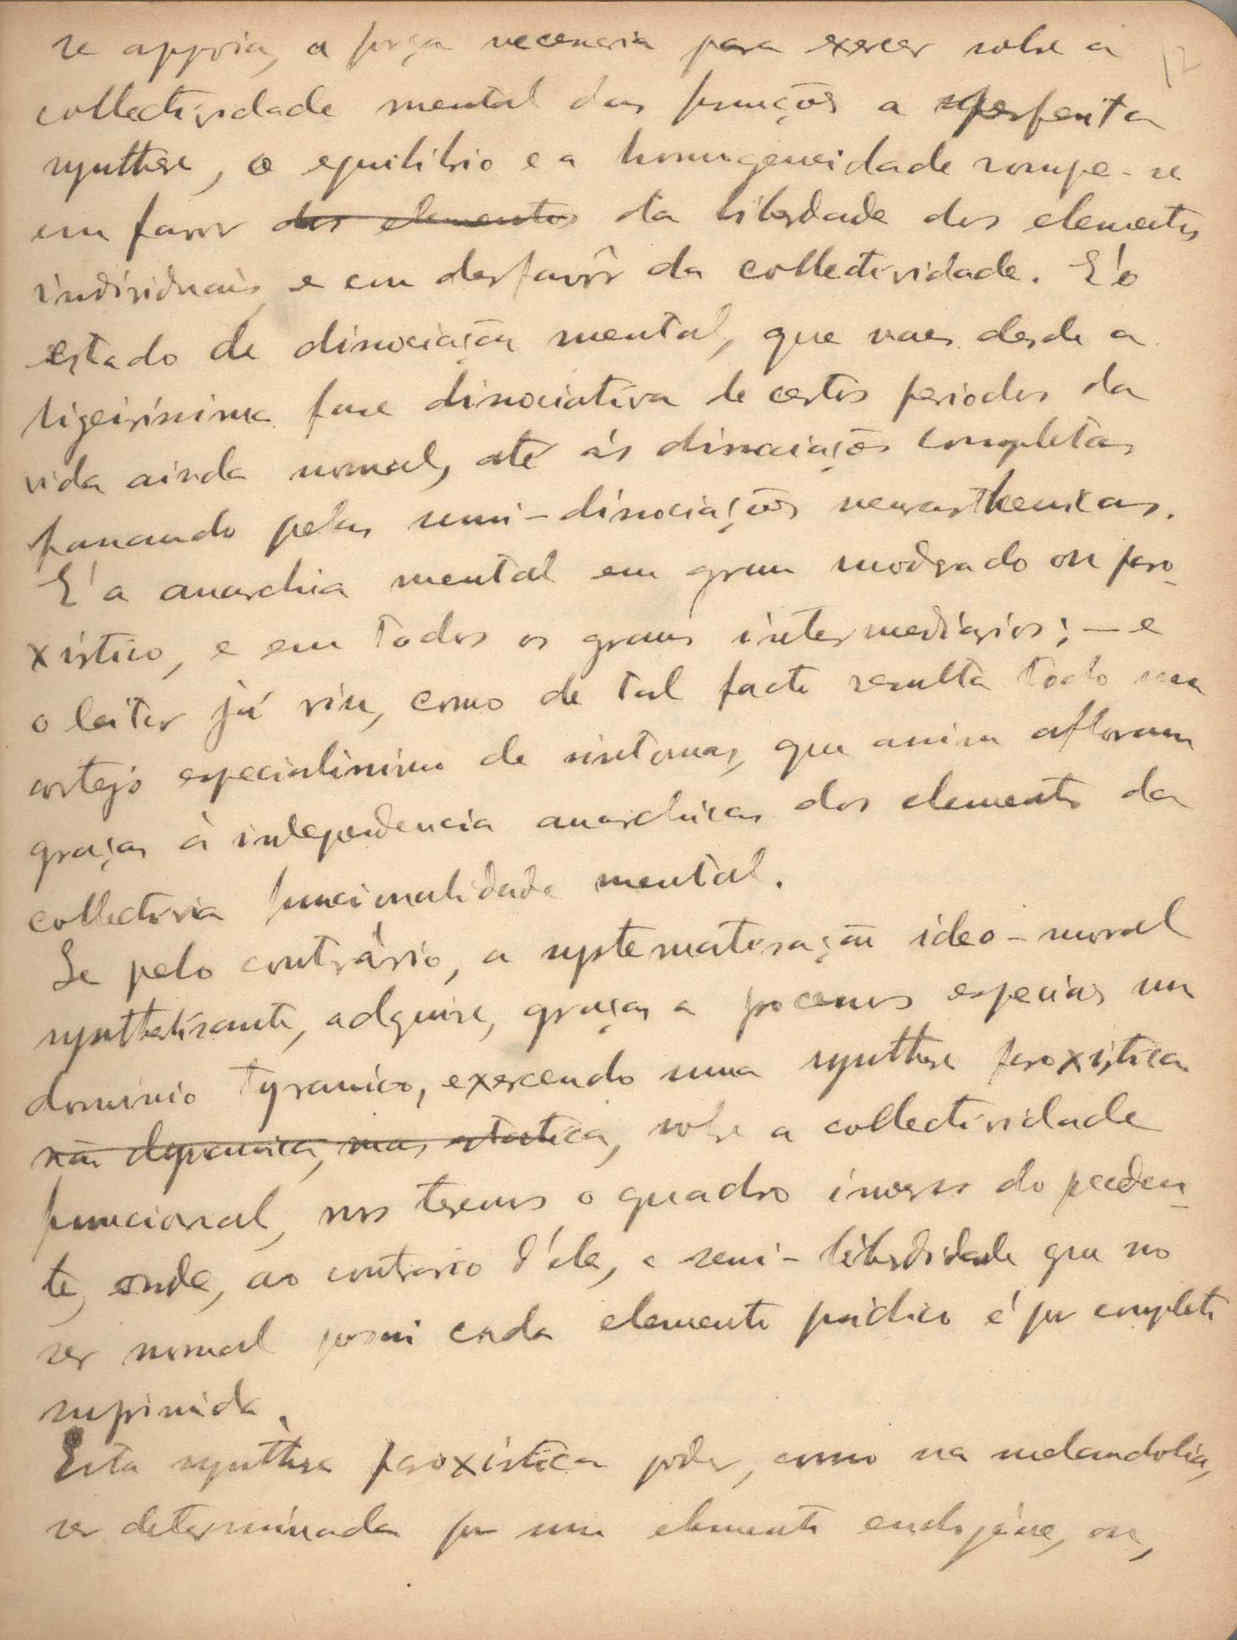 se appoia, a força necessaria para exercer sobre a
12
collectividade mental das funções a perfeita
synthese, o equilibrio e a homogeneidade rompe-se
em favor dos elementos da liberdade dos elementos
individuaes e em desfavôr da collectividade. E' o
estado de dissociação mental, que vae desde a
ligeirissima fase dissociativa de certos periodos da
vida ainda normal, até ás dissociações completas
passando pelas semi-dissociações neurasthenicas.
E' a anarchia mental em grau moderado ou paro-
xistico, e em todos os graus intermediarios; — e
o leitor já viu, como de tal facto resulta todo um
cortejo especialissimo de sintomas, que assim afloram
graças á independencia anarchica dos elementos da
collectiva funcionalidade mental.
Se pelo contrário, a systematisação ideo-moral
synthetisante, adquire, graças a processos especiaes um
dominio tyranico, exercendo uma synthese paroxistica
não dynamica, mas statica, sobre a collectividade
funcional, nós teremos o quadro inverso do preceden-
te, onde, ao contrario d'ele, a semi-liberdade que no
ser normal possui cada elemento psichico é por completo
suprimida.
Esta synthese paroxistica pode, como na melancholia,
ser determinada por um elemento endogéne, ou,